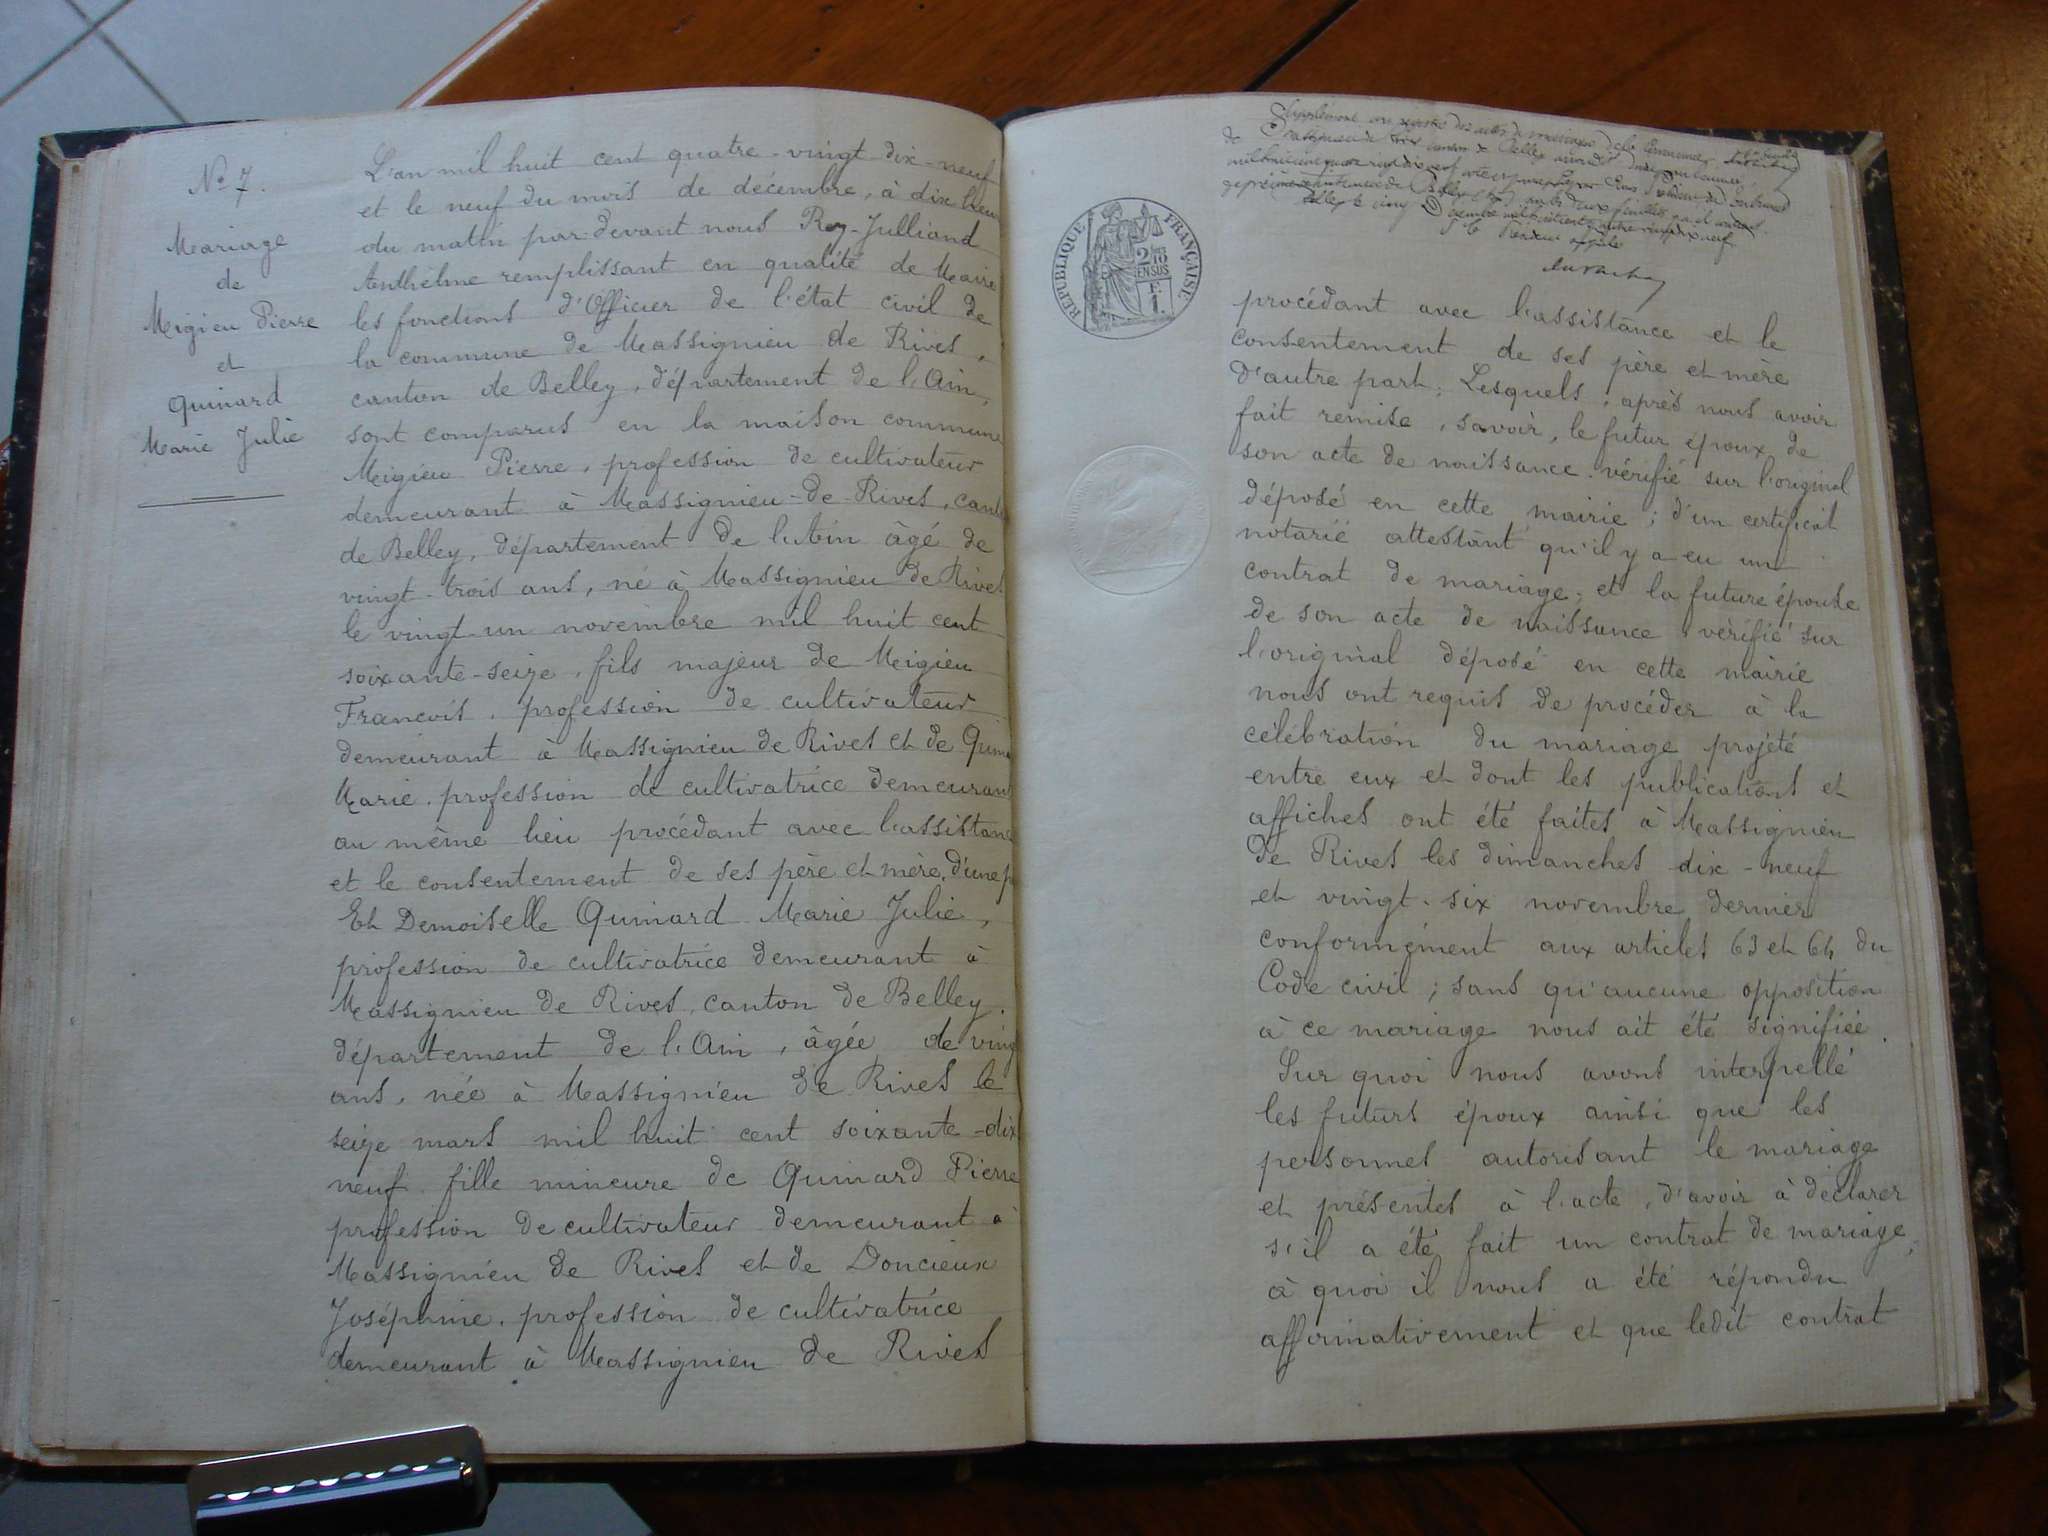 No 7.
Mariage
de
Migieu Pierre
et
Quinard
Marie Julie
L'an mil huit cent quatre-vingt-dix-neuf
et le neuf du mois de décembre, à dix heures
du matin par-devant nous Rey-Julliand
Anthelme remplissant en qualité de Maire
les fonctions d'Officier de l'état civil de
la commune de Massignieu de Rives,
canton de Belley, département de l'Ain,
sont comparus en la maison commune
Migieu Pierre, profession de cultivateur
demeurant à Massignieu-de-Rives, cant
de Belley, département de l'Ain âgé de
vingt-trois ans, né à Massignieu de Rives
le vingt-un novembre mil huit cent
soixante-seize, fils majeur de Migieu
François, profession de cultivateur
demeurant à Massignieu de Rives et de Quina
Marie, profession de cultivatrice demeurant
au même lieu procédant avec l'assistanc
et le consentement de ses père et mère, d'une p
Et Demoiselle Quinard Marie Julie,
profession de cultivatrice demeurant à
Massignieu de Rives, canton de Belley,
département de l'Ain, âgée de ving
ans, née à Massignieu de Rives le
seize mars mil huit cent soixante-dix
neuf, fille mineure de Quinard Pierre
profession de cultivateur demeurant à
Massignieu de Rives et de Doncieux
Joséphine, profession de cultivatrice
demeurant à Massignieu de Rives
Supplément au registre des actes de mariage de la Commune
de
Belley le cinq Décembre mil huit cent quatre vingt dix neuf
RÉPUBLIQUE FRANÇAISE
2/10 EN SUS
1 F.
procédant avec l'assistance et le
consentement de ses père et mère
d'autre part; Lesquels, après nous avoir
fait remise, savoir, le futur époux de
son acte de naissance vérifié sur l'original
déposé en cette mairie; d'un certificat
notarié attestant qu'il y a eu un
contrat de mariage; et la future épouse
de son acte de naissance vérifié sur
l'original déposé en cette mairie
nous ont requis de procéder à la
célébration du mariage projeté
entre eux et dont les publications et
affiches ont été faites à Massignieu
de Rives les dimanches dix-neuf
et vingt-six novembre dernier
conformément aux articles 63 et 64 du
Code civil; sans qu'aucune opposition
à ce mariage nous ait été signifiée.
Sur quoi nous avons interpellé
les futurs époux ainsi que les
personnes autorisant le mariage
et présentes à l'acte, d'avoir à déclarer
s'il a été fait un contrat de mariage,
à quoi il nous a été répondu
affirmativement et que ledit contrat